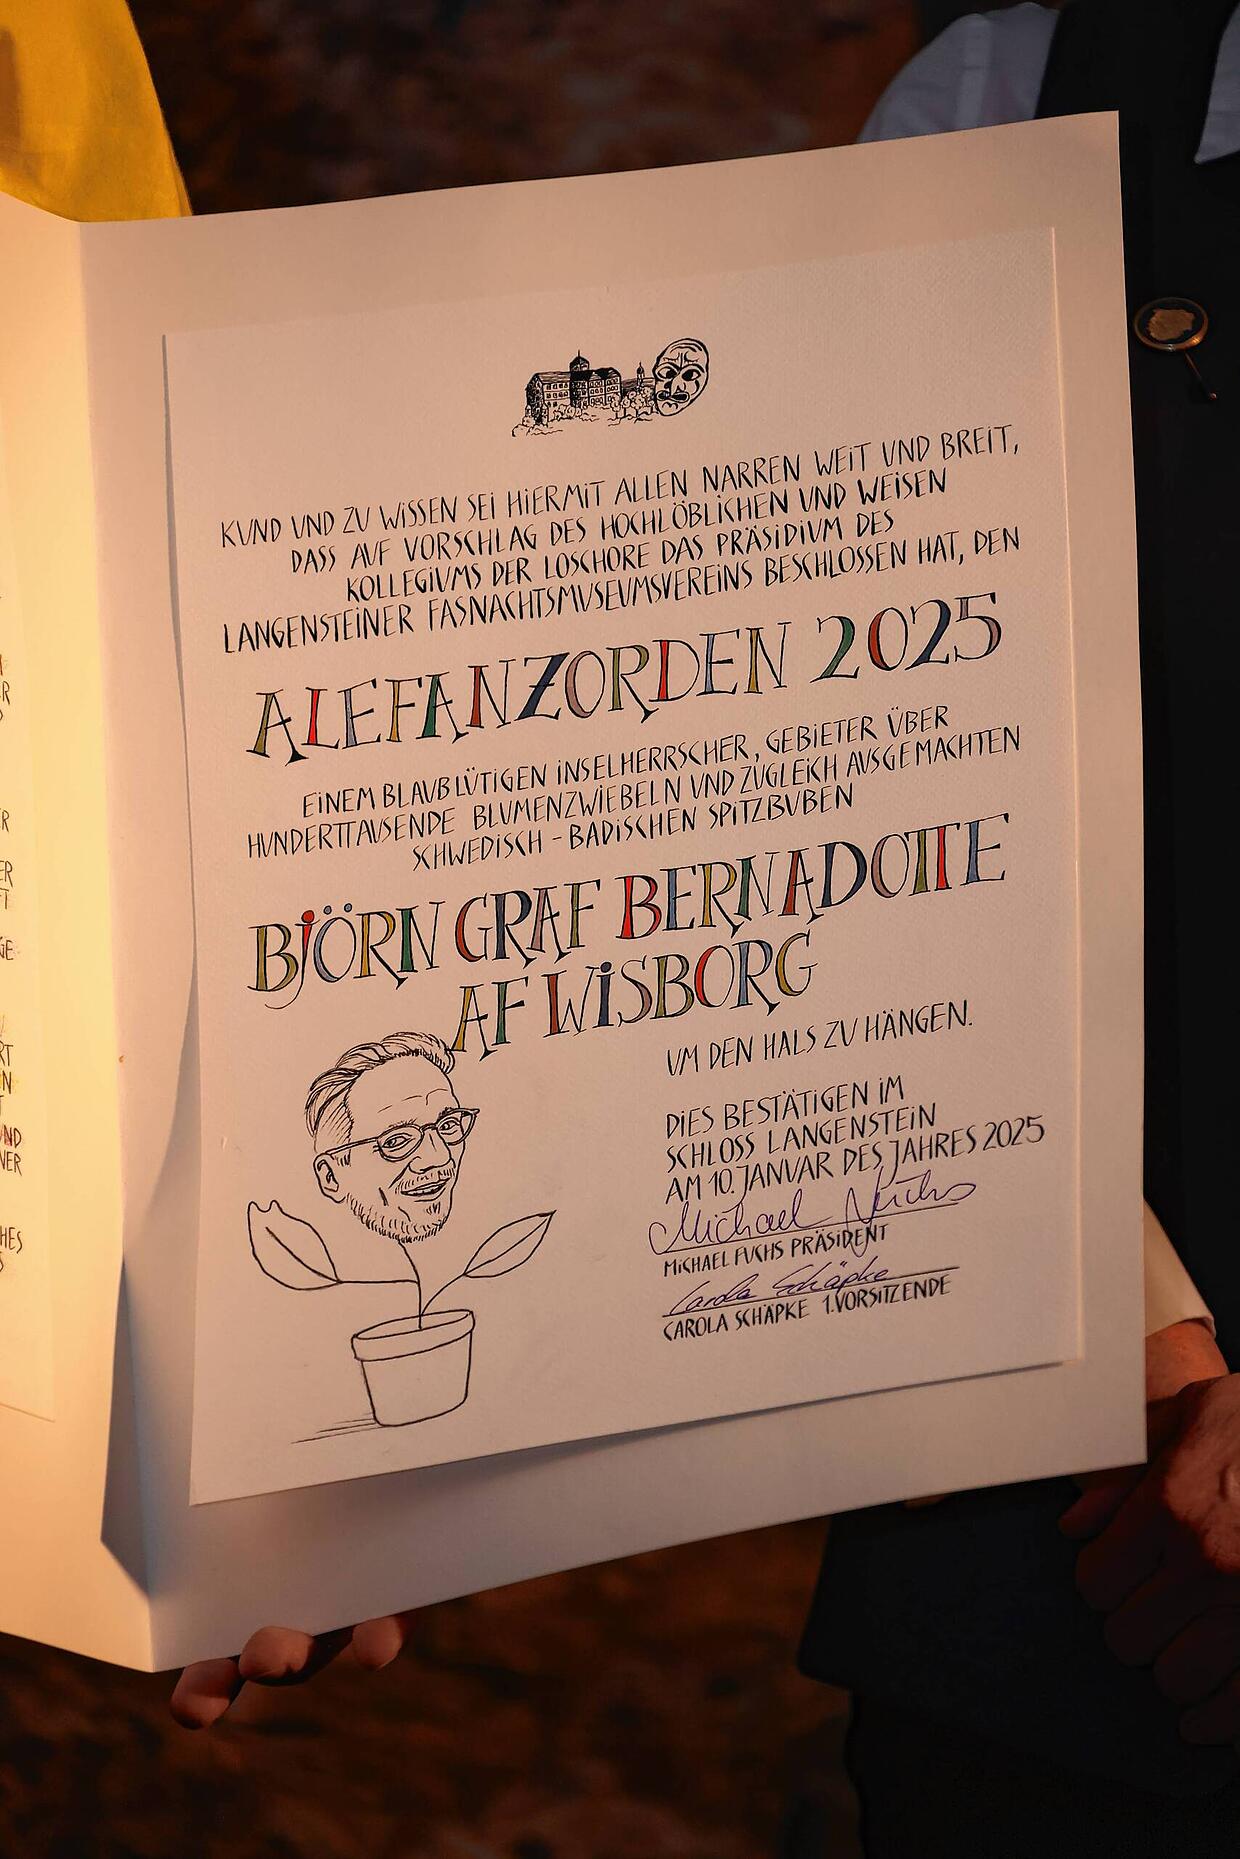 KUND UND ZU WISSEN SEI HIERMIT ALLEN NARREN WEIT UND BREIT,
DASS AUF VORSCHLAG DES HOCHLÖBLICHEN UND WEISEN
KOLLEGIUMS DER LOSCHORE DAS PRÄSIDIUM DES
LANGENSTEINER FASNACHTSMUSEUMSVEREINS BESCHLOSSEN HAT, DEN
ALEFANZORDEN 2025
EINEM BLAUBLÜTIGEN INSELHERRSCHER, GEBIETER ÜBER
HUNDERTTAUSENDE BLUMENZWIEBELN UND ZUGLEICH AUSGEMACHTEN
SCHWEDISCH-BADISCHEN SPITZBUBEN
BJÖRN GRAF BERNADOTTE
AF WISBORG
UM DEN HALS ZU HÄNGEN.
DIES BESTÄTIGEN IM
SCHLOSS LANGENSTEIN
AM 10. JANUAR DES JAHRES 2025
Michael Fuchs
MICHAEL FUCHS PRÄSIDENT
Carola Schäpke
CAROLA SCHÄPKE 1. VORSITZENDE